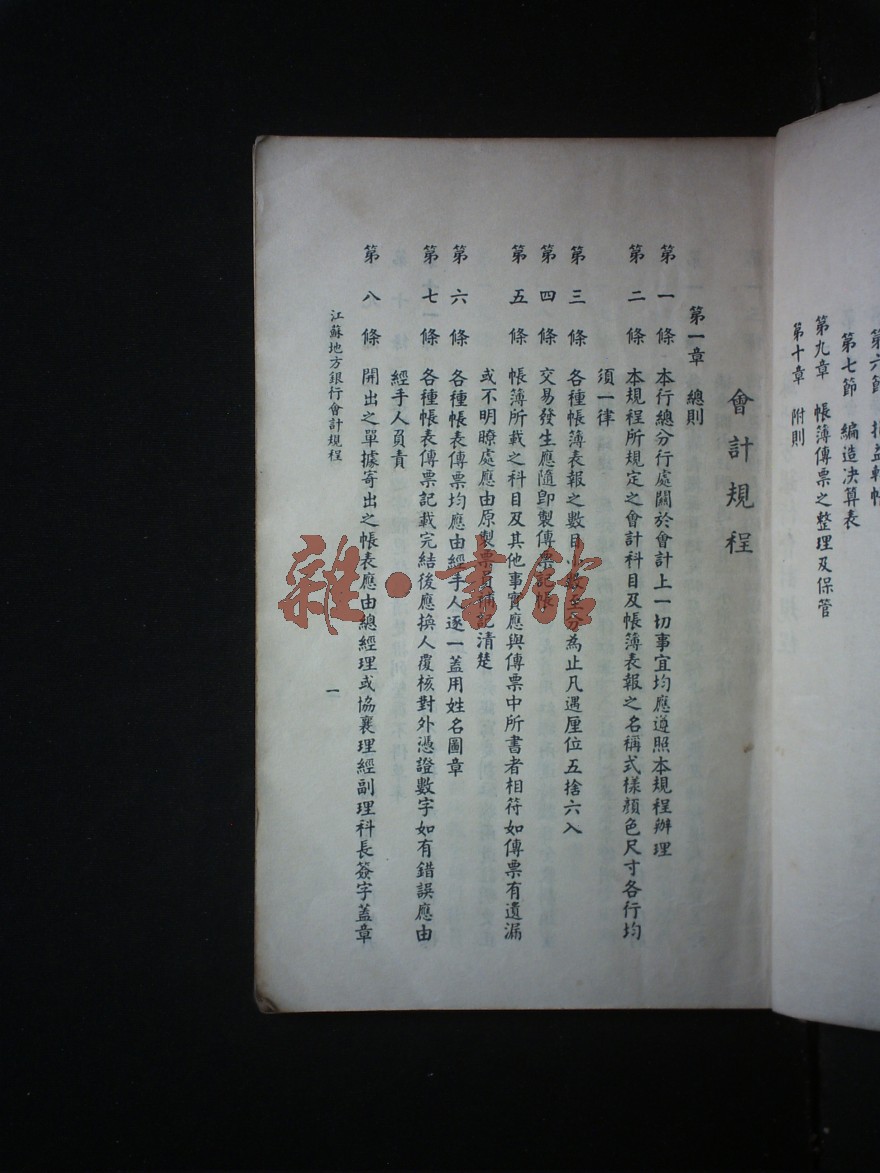 第六節
第七節 編造決算表
第九章 帳簿傳票之整理及保管
第十章 附則
會計規程
第一章 總則
第一條 本行總分行處關於會計上一切事宜均應遵照本規程辦理
第二條 本規程所規定之會計科目及帳簿表報之名稱式樣顏色尺寸各行均
須一律
第三條 各種帳簿表報之數目小數至分為止凡遇厘位五捨六入
第四條 交易發生應隨卽製傳票記帳
第五條 帳簿所載之科目及其他事實應與傳票中所書者相符如傳票有遺漏
或不明瞭處應由原製票員補記清楚
第六條 各種帳表傳票均應由經手人逐一蓋用姓名圖章
第七條 各種帳表傳票記載完結後應換人覆核對外憑證數字如有錯誤應由
經手人負責
第八條 開出之單據寄出之帳表應由總經理或協襄理經副理科長簽字蓋章
江蘇地方銀行會計規程
一
雜·書館